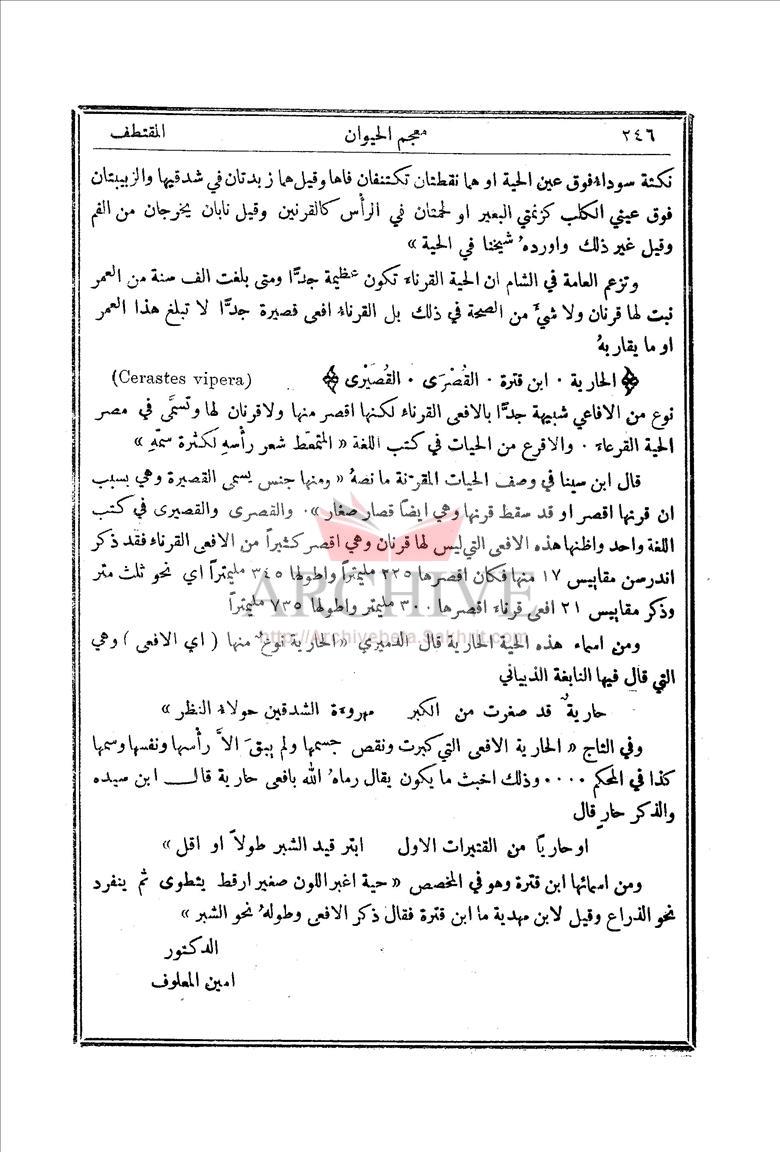 ٢٤٦ معجم الحيوان المقتطف
نكتة سوداء فوق عين الحية او هما نقطتان تكتنفان فاها وقيل هما زبدتان في شدقيها والزبيبتان
فوق عيني الكلب كزنمتي البعير او لحمتان في الرأس كالقرنين وقيل نابان يخرجان من الفم
وقيل غير ذلك واورده شيخنا في الحية »
وتزعم العامة في الشام ان الحية القرناء تكون عظيمة جدًّا ومتى بلغت الف سنة من العمر
نبت لها قرنان ولا شيءٌ من الصحة في ذلك بل القرناء افعى قصيرة جدًّا لا تبلغ هذا العمر
او ما يقاربهُ
الحارية ٠ ابن قترة ٠ القُصْرَى ٠ القُصَيْرى (Cerastes vipera)
نوع من الافاعي شبيهة جدًّا بالافعى القرناء لكنها اقصر منها ولا قرنان لها وتسمَّى في مصر
الحية القرعاء ٠ والاقرع من الحيات في كتب اللغة « المتمعّط شعر رأسهِ لكثرة سمّهِ »
قال ابن سينا في وصف الحيات المقرّنة ما نصهُ « ومنها جنس يسمى القصيرة وهي بسبب
ان قرنها اقصر او قد سقط قرنها وهي ايضاً قصار صغار »٠ والقصرى والقصيرى في كتب
اللغة واحد واظنها هذه الافعى التي ليس لها قرنان وهي اقصر كثيراً من الافعى القرناء فقد ذكر
اندرسن مقاييس ١٧ منها فكان اقصرها ٢٢٥ مليمتراً واطولها ٣٤٥ مليمتراً اي نحو ثلث متر
وذكر مقاييس ٢١ افعى قرناء اقصرها ٣٠٠ مليمتر واطولها ٧٣٥ مليمتراً
ومن اسماء هذه الحية الحارية قال الدميري « الحارية نوعٌ منها ( اي الافعى ) وهي
التي قال فيها النابغة الذبياني
حاريةٌ قد صغرت من الكبر مهروءة الشدقين حولاء النظر »
وفي التاج « الحارية الافعى التي كبرت ونقص جسمها ولم يبقَ الاَّ رأسها ونفسها وسمها
كذا في المحكم ٠٠٠٠ وذلك اخبث ما يكون يقال رماهُ الله بافعى حارية قال ابن سيده
والذكر حارٍ قال
او حاريًا من القتيرات الاول ابتر قيد الشبر طولاً او اقل »
ومن اسمائها ابن قترة وهو في المخصص « حية اغبر اللون صغير ارقط ينطوى ثم ينفرد
نحو الذراع وقيل لابن مهدية ما ابن قترة فقال ذكر الافعى وطولهُ نحو الشبر »
الدكتور
امين المعلوف
ARCHIVE
http://Archivebeta.Sakhrit.com